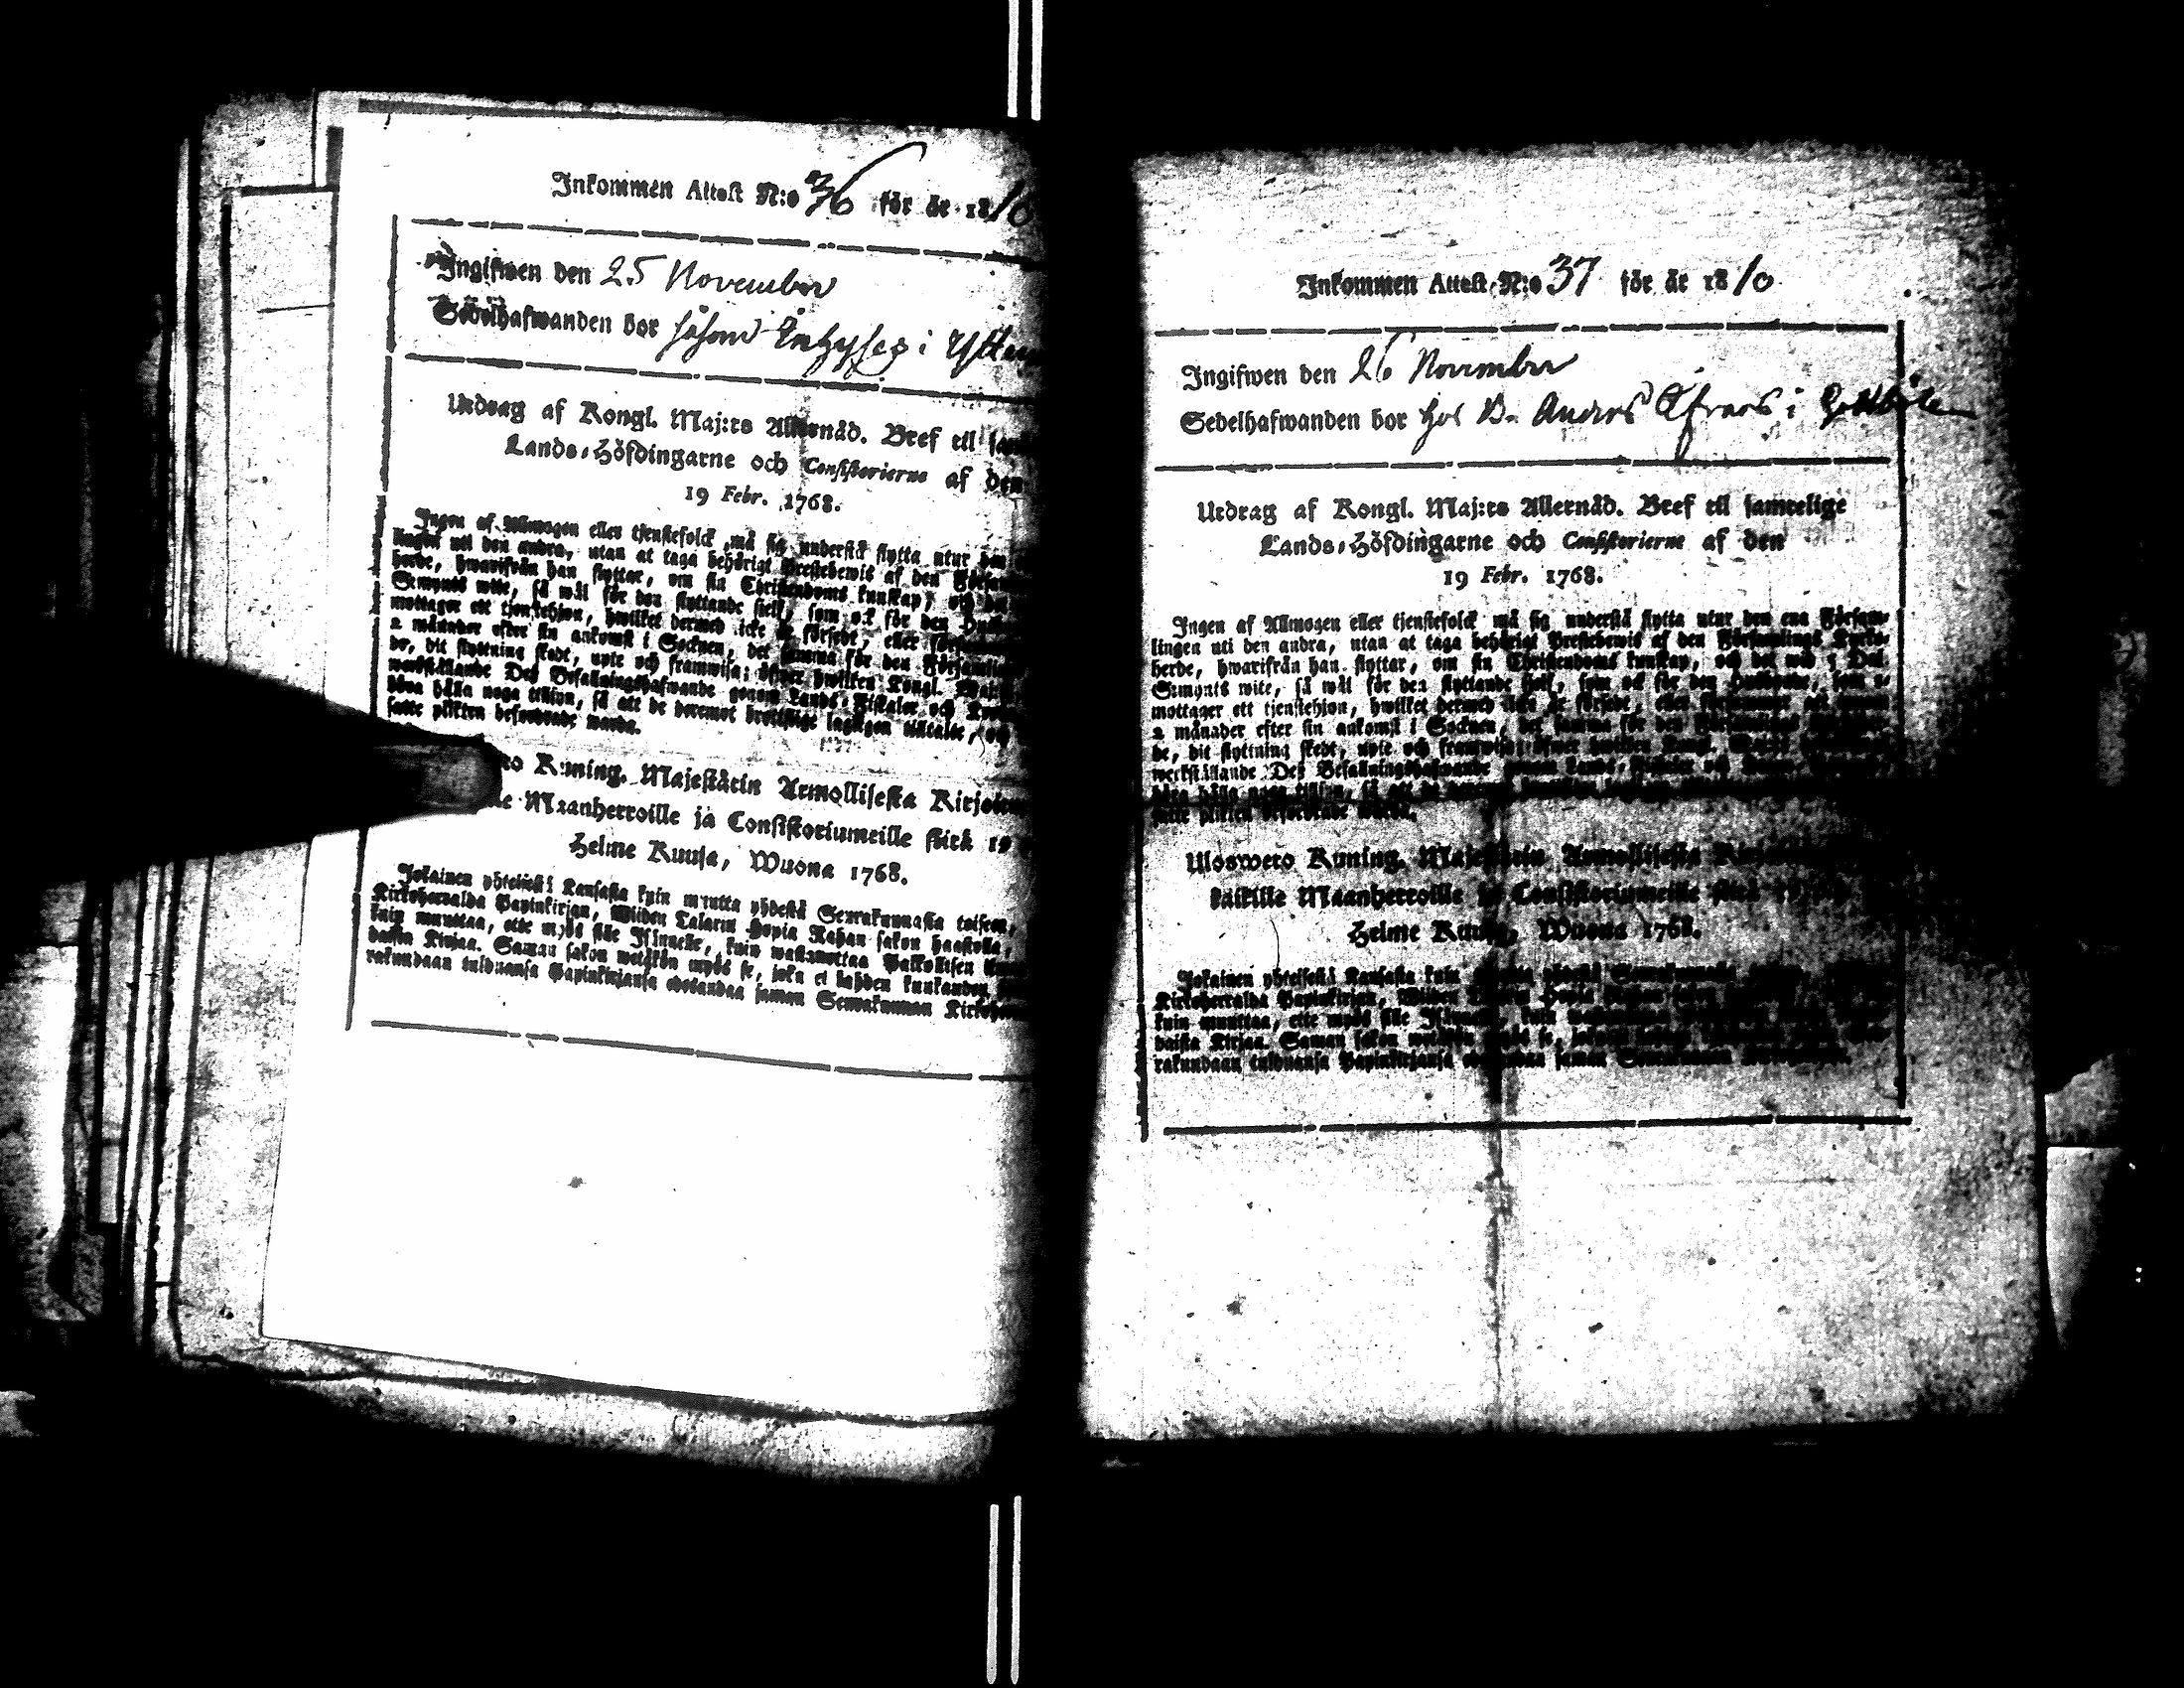 Inkommen Attest N:o 36 för år 1810
Ingifwen den 25 November
Sedelhafwanden bor i
Utdrag af Kongl. Maj:ts Allernåd. Bref til
Lands-Höfdingarne och Consistorierne af den
19 Febr. 1768.
Ingen af Allmogen eller tjenstefolck må sig understå flytta utur den
lingen uti den andra, utan at taga behörigt Prestebewis af den
herde, hwarifrån han flyttar, om sin Christendoms kunskap, och det
S:mynts wite, så wäl för den flyttande sielf, som ock för den
mottager ett tjenstehjon, hwilket dermed icke är försedt, eller
2 månader efter sin ankomst i Socknen, det samma för den
de, dit flyttning skedt, upte och framwisa; öfwer hwilken Kongl.
werkställande Des Befallningshafwande genom Lands-Fiskaler och
böra hålla noga tillsyn, så att de deremot brottslige lagligen tilltalte, och
satte plikten befordrade warda.
Kuning. Majestätin Armollisesta
Maanherroille ja Consistoriumeille stitä 19
Helme Kuusa, Wuona 1768.
Jokainen yhteisestä Kansasta kuin muutta yhdestä Seurakunnasta toiseen,
Kirkoherralda Papinkirjan, Wiiden Talarin Hopia Rahan sakon haastolla,
kuin muuttaa, ette myös sille Isännelle, kuin wastanottaa Palkollisen
daista Kirjaa. Saman sakon wetäkön myös se, joka ei kahden kuukauden
rakundaan tulduansa Papinkirjansa edesandaa saman Seurakunnan
Inkommen Attest N:o 37 för år 1810
Ingifwen den 26 November
Sedelhafwanden bor hos B. Anders i
Utdrag af Kongl. Maj:ts Allernåd. Bref til samtelige
Lands-Höfdingarne och Consistorierne af den
19 Febr. 1768.
Ingen af Allmogen eller tjenstefolck må sig understå flytta utur den ena Försam-
lingen uti den andra, utan at taga behörigt Prestebewis af den Församlings Kyrko-
herde, hwarifrån han flyttar, om sin Christendoms kunskap, och det wid 5 Dal.
S:mynts wite, så wäl för den flyttande sielf, som ock för den Husbonde, som e-
mottager ett tjenstehjon, hwilket dermed icke är försedt, eller försummat att innom
2 månader efter sin ankomst i Socknen, det samma för den Församlings
de, dit flyttning skedt, upte och framwisa; öfwer hwilken Kongl.
werkställande Des Befallningshafwande genom Lands-Fiskaler och
böra hålla noga tillsyn, så att de deremot
satte plikten befordrade warda.
Uloswero Kuning. Majestätin Armollisesta
kaikille Maanherroille ja Consistoriumeille stitä 19
Helme Kuusa, Wuona 1768.
Jokainen yhteisestä Kansasta kuin muutta yhdestä Seurakunnasta
Kirkoherralda Papinkirjan, Wiiden Talarin Hopia
kuin muuttaa, ette myös sille Isännelle, kuin
daista Kirjaa. Saman sakon wetäkön myös se,
rakundaan tulduansa Papinkirjansa edesandaa saman Seurakunnan